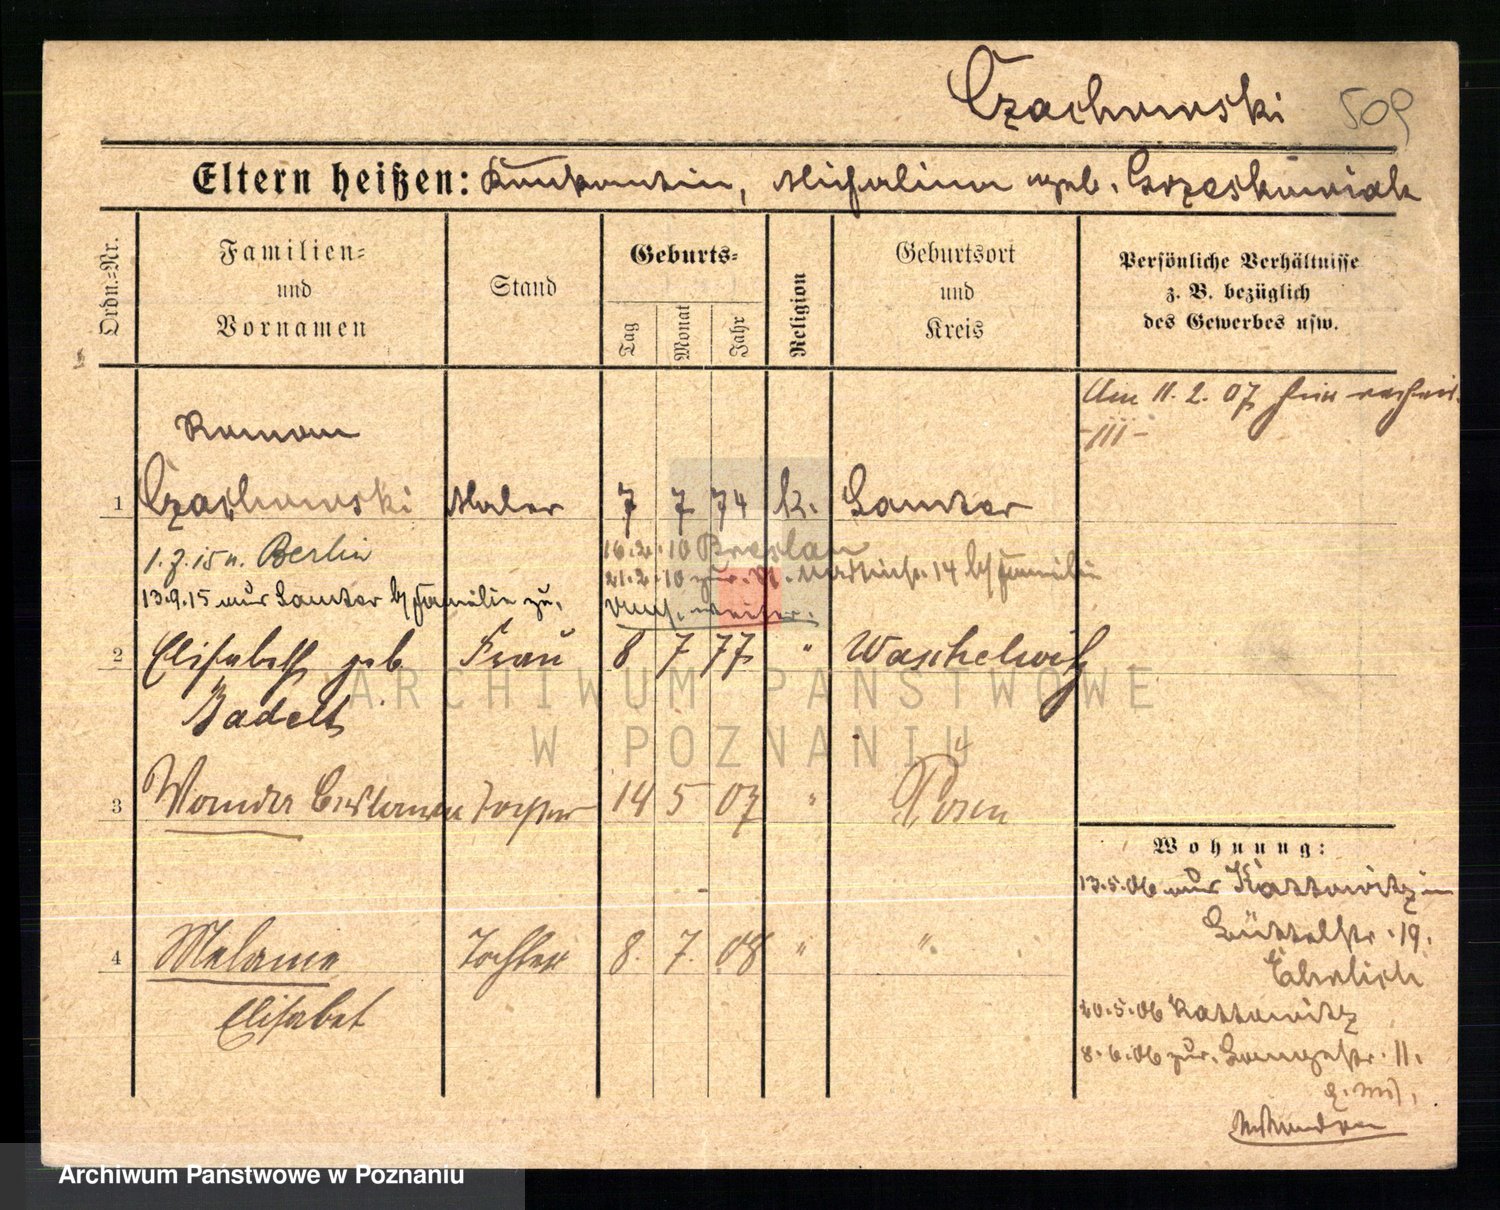 Czachowski 509
Eltern heißen: Konstantin, Michalina geb. Grzeskowiak
Ordn.=Nr.
Familien=
und
Vornamen
Stand
Geburts=
Tag
Monat
Jahr
Religion
Geburtsort
und
Kreis
Persönliche Verhältnisse
z. B. bezüglich
des Gewerbes usw.
Am 11. 2. 07 hier
Roman
1 Czachowski Maler 7 7 74 k. Samter
1.7.15 n. Berlin
16.2.10 Breslau
21.2.10 zur. 14 b/ Familie
13.9.15 von Samter b/ Familie zu.
weiter.
2 Elisabeth geb. Frau 8 7 77 " Waschelwitz
Badelt
3 Wanda Tochter 14 5 07 " Posen
Wohnung:
13.5.06 von Kattowitz in
19.
Ehrlich
4 Melanie Tochter 8. 7. 08 " "
Elisabet
20.5.06 Kattowitz
8.6.06 zur. Langestr. 11.
ARCHIWUM PAŃSTWOWE
W POZNANIU
Archiwum Państwowe w Poznaniu